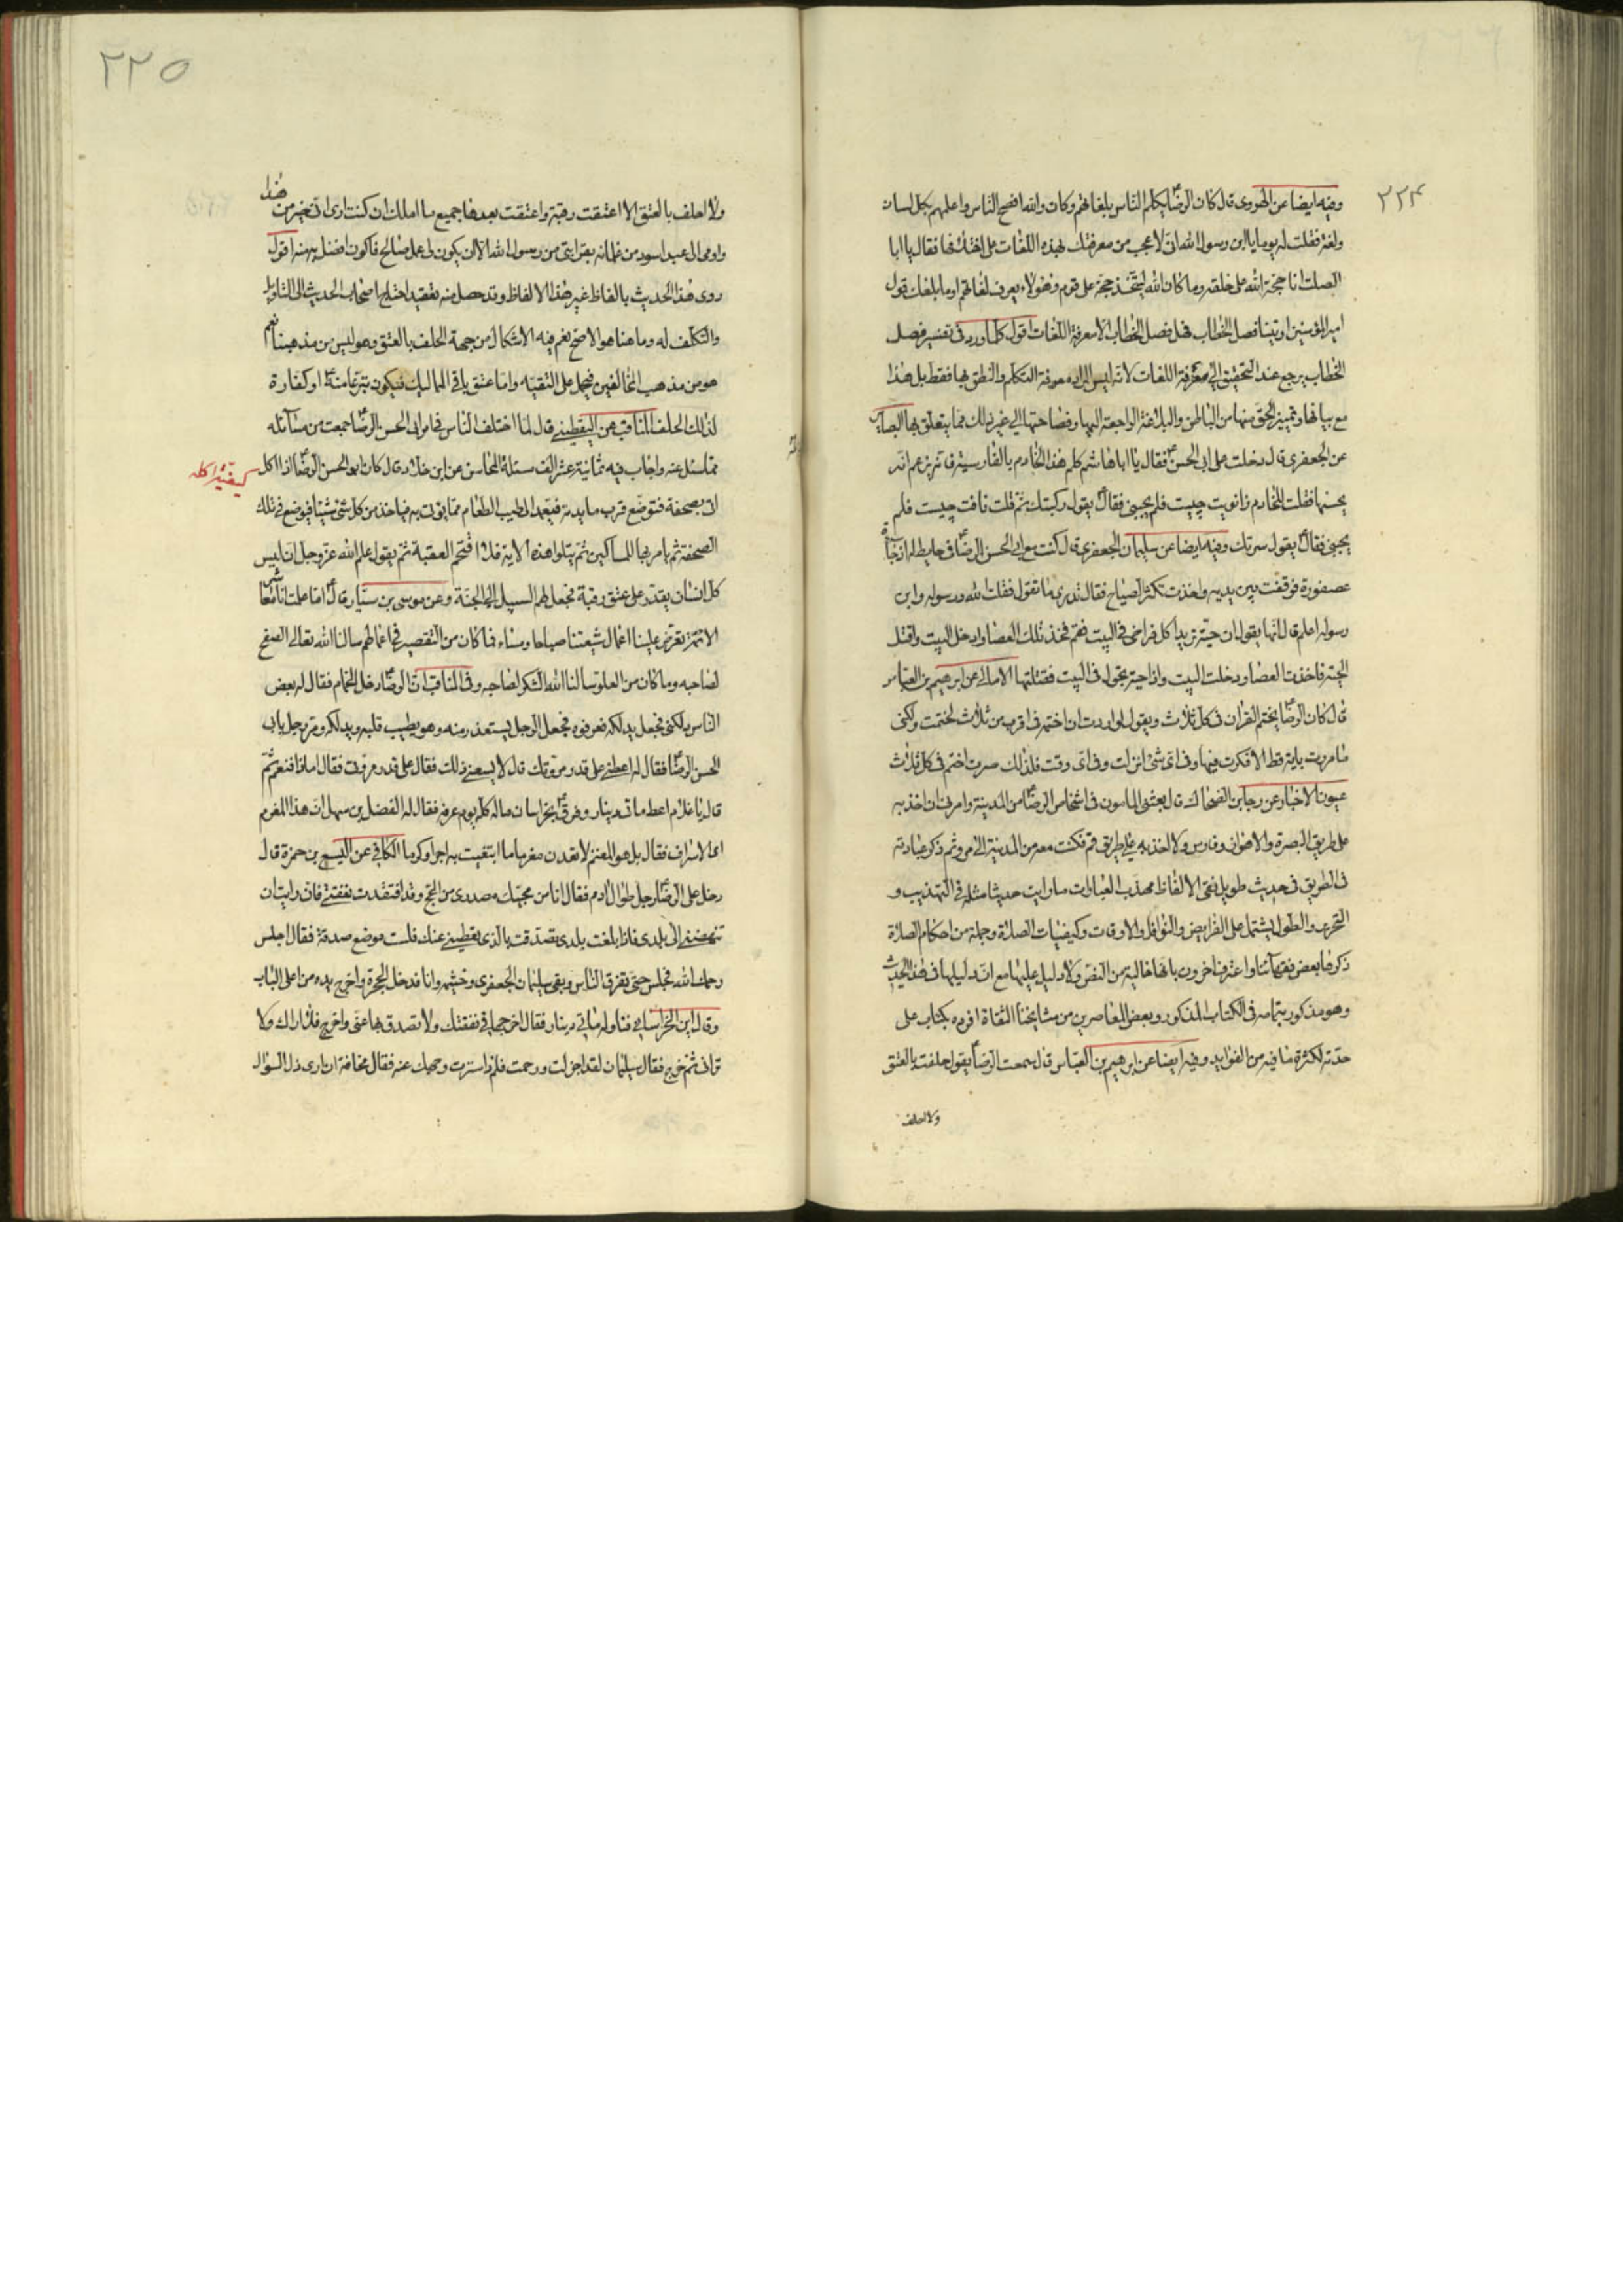 ٢٢٤
وفيه ايضا عن الهروى قال كان الرضاؑ يكلم الناس بلغاتهم وكان والله افصح الناس واعلمهم بكل لسان
ولغة فقلت له يوما يا ابن رسول الله انى لاعجب من معرفتك بهذه اللغات على اختلافها فقال يا ابا
الصلت انا حجة الله على خلقه وما كان الله ليتخذ حجة على قوم وهو لا يعرف لغاتهم اوما بلغك قول
امير المؤمنين اوتينا فصل الخطاب فهل فصل الخطاب الا معرفة اللغات اقول كلما ورد فى تفسير فصل
الخطاب يرجع عند التحقيق الى معرفة اللغات لانه ليس المراد معرفة التكلم والنطق بها فقط بل هذا
مع بيانها وتمييز الحق منها من الباطن والبلاغة الراجعة اليها وفصاحتها الى غير ذلك مما يتعلق بها البصائر
عن الجعفرى قال دخلت على ابى الحسنؑ فقال يا ابا هاشم كلم هذا الخادم بالفارسية فانه يزعم انه
يحسنها فقلت للخادم زانويت چيست فلم يجبنى فقالؑ يقول ركبتك ثم قلت نافت چيست فلم
يجبنى فقالؑ يقول سرتك وفيه ايضا عن سليمان الجعفرى قال كنت مع ابى الحسن الرضاؑ فى حايط له اذ جاءت
عصفورة فوقعت بين يديه واخذت تكثر الصياح فقال تدرى ما تقول فقلت الله ورسوله وابن
رسوله اعلم قال انها يقول ان حية تريد اكل فراخى فى البيت فقم فخذ تلك العصا وادخل البيت واقتل
الحية فاخذت العصا ودخلت البيت واذا حية تجول فى البيت فقتلتها الامالى عن ابرهيم بن العباس
قال كان الرضاؑ يختم القران فى كل ثلاث ويقول لو اردت ان اختمه فى اقرب من ثلاث لختمت ولكنى
ما مررت باية قط الا فكرت فيها وفى اى شئ انزلت وفى اى وقت فلذلك صرت اختم فى كل ثلاث
عيون الاخبار عن رجا بن الضحاك قال بعثنى المامون فى اشخاص الرضاؑ من المدينة وامرنى ان اخذ به
على طريق البصرة والاهواز وفارس ولا اخذ به على طريق قم فكنت معه من المدينة الى مرو ثم ذكر عبادته
فى الطريق فى حديث طويل نقى الالفاظ مهذب العبارات ما رايت حديثا مثله فى التهذيب و
التحرى والطول يشتمل على الفرايض والنوافل والاوقات وكيفيات الصلاة وجملة من احكام الصلاة
ذكرها بعض فقهائنا واعترف اخرون بانها خالية من النص ولا دليل عليها مع ان دليلها فى هذا الحديث
وهو مذكور بتمامه فى الكتاب المذكور وبعض المعاصرين من مشايخنا الثقاة افرده بكتاب على
حدته لكثرة ما فيه من الفوايد وفيه ايضا عن ابرهيم بن العباس قال سمعت الرضاؑ يقول حلفت بالعتق
ولا احلف
٢٢٥
ولا احلف بالعتق الا اعتقت رقبة واعتقت بعدها جميع ما املك ان كنت ارى انى خير من هذا
واومى الى عبد اسود من غلمانه بقرابتى من رسول الله الا ان يكون لى عمل صالح فاكون افضل به منه اقول
روى هذا الحديث بالفاظ غير هذا الالفاظ وقد حصل منه تعقيد احتاج اصحاب الحديث الى التاويل
والتكلف له وما هنا هو الاصح نعم فيه الاشكال من جهة الحلف بالعتق وهو ليس من مذهبنا نعم
هو من مذهب المخالفين فيحمل على التقيه واما عتق باقى المماليك فيكون تبرعا منهؑ او كفارة
لذلك الحلف المناقب عن اليقطينى قال لما اختلف الناس فى امر ابى الحسن الرضاؑ جمعت من مسائله
مما سئل عنه واجاب فيه ثمانية عشر الف مسئلة المحاسن عن ابن خلاد قال كان ابو الحسن الرضاؑ اذا اكل
كيفية اكله
اتى بصحفة فتوضع قرب مايدته فيعمد الى اطيب الطعام مما يؤتى به فياخذ من كل شئ شيئا فيوضع فى تلك
الصحفة ثم يامر بها للمساكين ثم يتلو هذه الاية فلا اقتحم العقبة ثم يقول علم الله عز وجل ان ليس
كل انسان يقدر على عتق رقبة فجعل لهم السبيل الى الجنة وعن موسى بن سيار قالؑ اما علمت انا معاشر
الائمة تعرض علينا اعمال شيعتنا صباحا ومساء فما كان من التقصير فى اعمالهم سالنا الله تعالى الصفح
لصاحبه وما كان من العلو سالنا الله الشكر لصاحبه وفى المناقب ان الرضاؑ دخل الحمام فقال له بعض
الناس دلكنى فجعل يدلكه فعرفوه فجعل الرجل يستعذر منه وهو يطيب قلبه ويدلكه ومر رجل بابى
الحسن الرضاؑ فقال له اعطنى على قدر مروتك قال لا يسعنى ذلك فقال على قدر مروتى فقال اما ذا فنعم ثم
قال يا غلام اعطه ماتى دينار وفرقؑ بخراسان ماله كله يوم عرفه فقال له الفضل بن سهل ان هذا المغرم
اى الاسراف فقال بل هو المغنم لا تعدن مغرما ما ابتغيت به اجرا وكرما الكافى عن اليسع بن حمزة قال
دخل على الرضاؑ رجل طوال ادم فقال انا من محبيك مصدرى من الحج وقد افتقدت نفقتى فان رايت ان
تنهضنى الى بلدى فاذا بلغت بلدى تصدقت بالذى يعطينى عنك فلست موضع صدقة فقال اجلس
رحمك الله فجلس حتى تفرق الناس وبقى سليمان الجعفرى وخيثمه وانا فدخل الحجرة واخرج يده من اعلى الباب
وقال اين الخراسانى فناوله مائتى دينار فقال اخرجها فى نفقتك ولا تصدق بها عنى واخرج فلا اراك ولا
ترانى ثم خرج فقال سليمان لقد اجزلت ورحمت فلماذا سترت وجهك عنه فقال مخافة ان ارى ذل السؤال